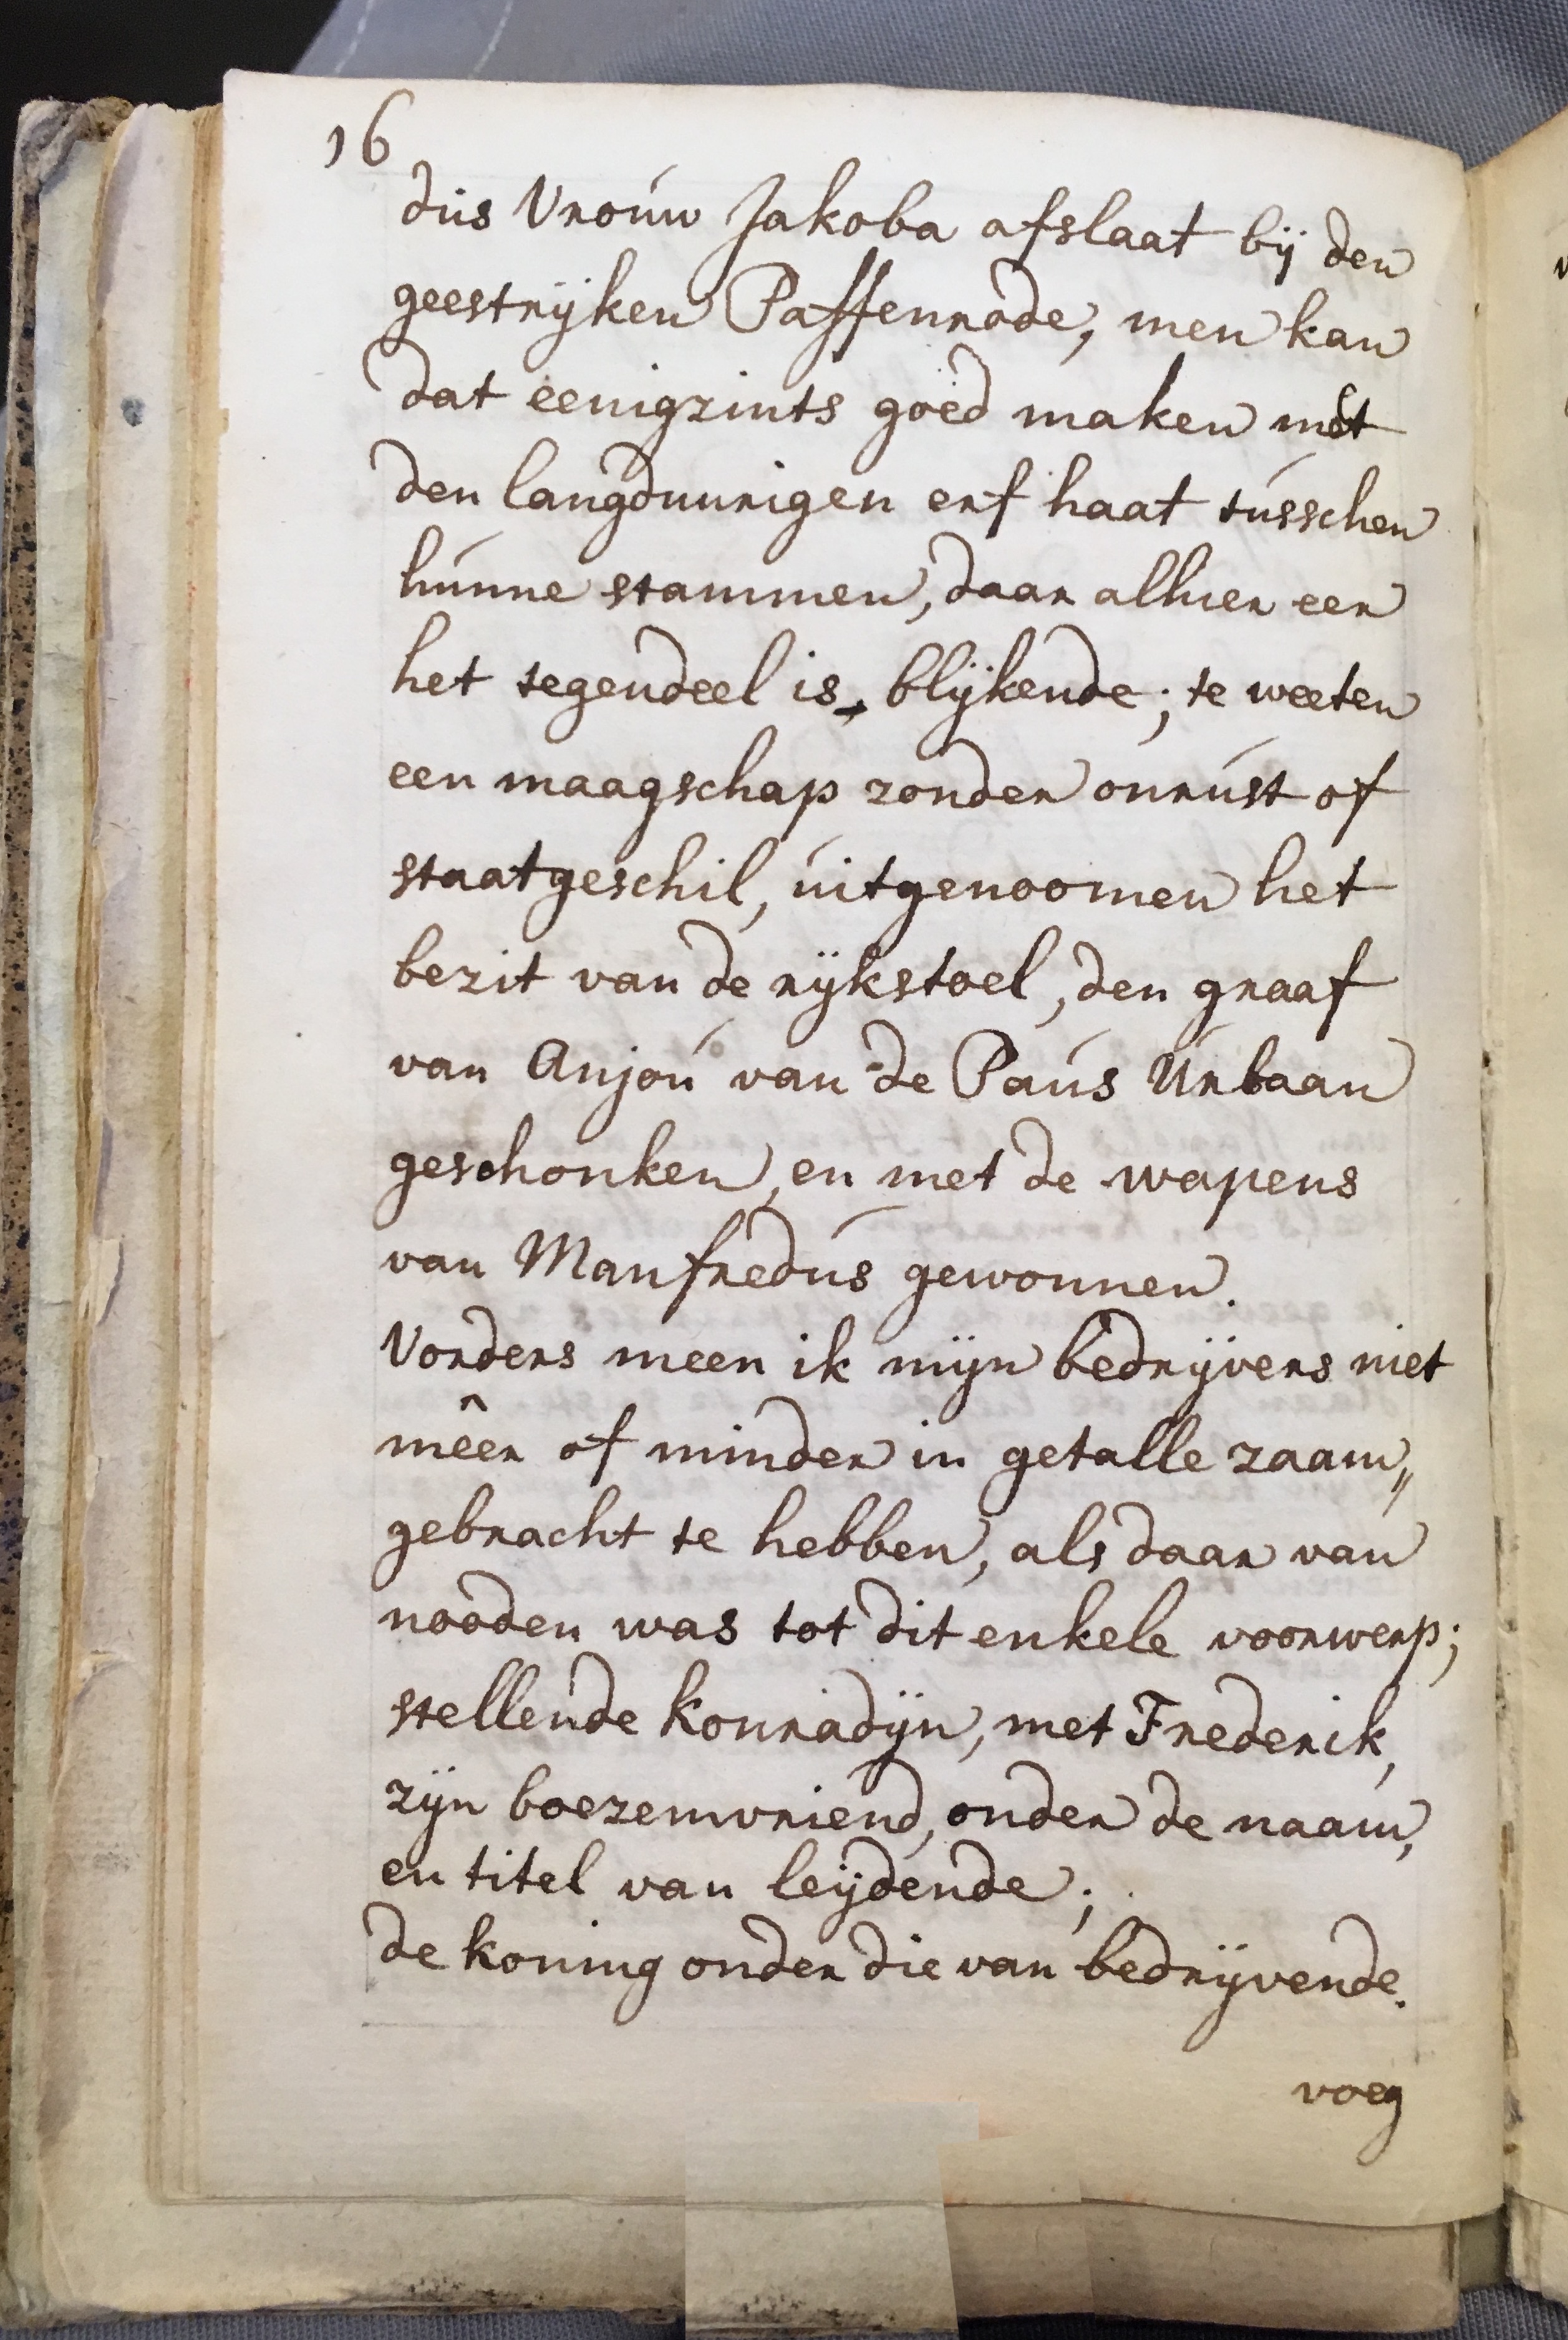 16
dus Vrouw Jakoba afslaat bij den
geestrijken Paffenrode, men kan
dat eenigzints goed maken mèt
den langduurigen erf haat tusschen
hunne stammen, daar alhier een
het tegendeel is, blijkende; te weeten
een maagschap zonder onrust of
staatgeschil, uitgenoomen het
bezit van de rijkstoel, den graaf
van Anjou van de Paus Urbaan
geschonken, en met de wapens
van Manfredus gewonnen.
Vorders meen ik mijn bedrijvers niet
mêer of minder in getalle zaam„
gebracht te hebben, als daar van
nooden was tot dit enkele voorwerp;
stellende Konradijn, met Frederik,
zijn boezemvriend, onder de naam,
en titel van leijdende;
de koning onder die van bedrijvende.
voeg